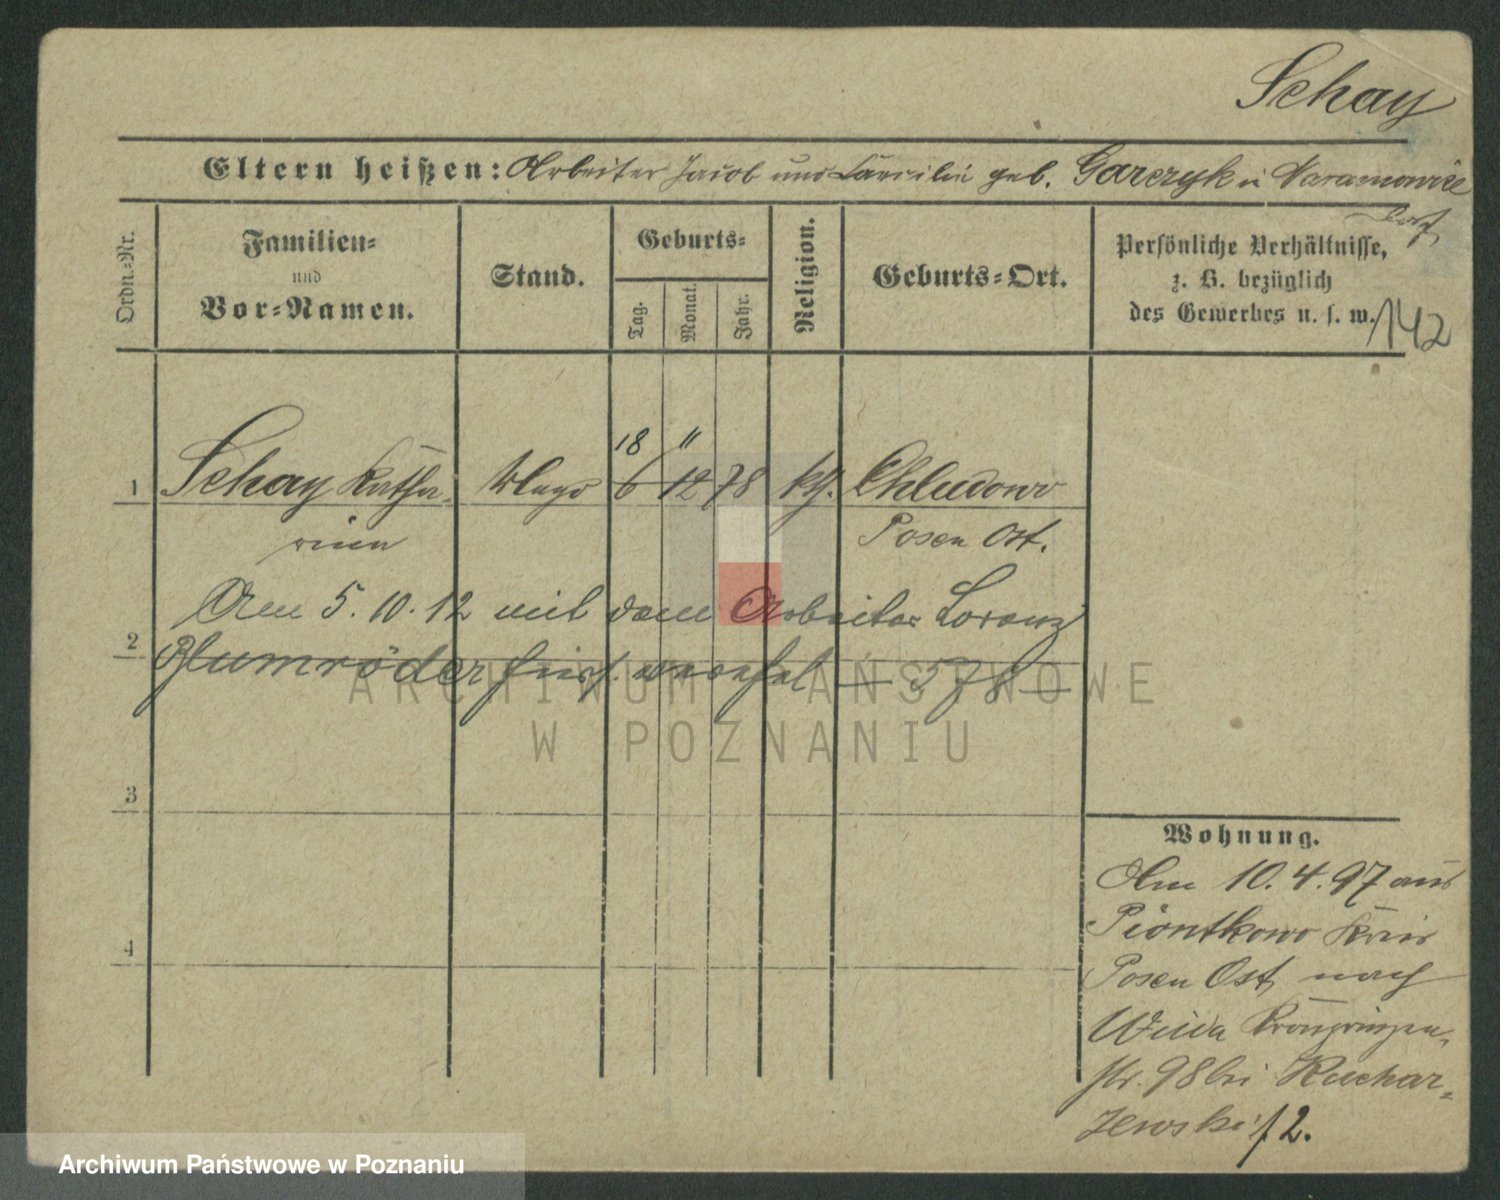 Schay
Eltern heißen: Arbeiter Jacob und Cäcilie geb. Garczyk in Naramowice
Dorf
Ordn.-Nr.
Familien-
und
Vor-Namen.
Stand.
Geburts-
Tag.
Monat.
Jahr.
Religion.
Geburts-Ort.
Persönliche Verhältnisse,
z. B. bezüglich
des Gewerbes u. s. w.
142
18 11
1 Schay Katha- Magd 6 12 78 kth. Chludowo
rina Posen Ost.
Am 5. 10. 12 mit dem Arbeiter Lorenz
2 Blumröder hier verehel. — 578 —
3
4
Wohnung.
Am 10. 4. 97 aus
Piontkowo Kreis
Posen Ost nach
Wilda Kronprinzen-
str. 98 bei Kuchar-
zewski f 2.
ARCHIWUM PAŃSTWOWE
W POZNANIU
Archiwum Państwowe w Poznaniu